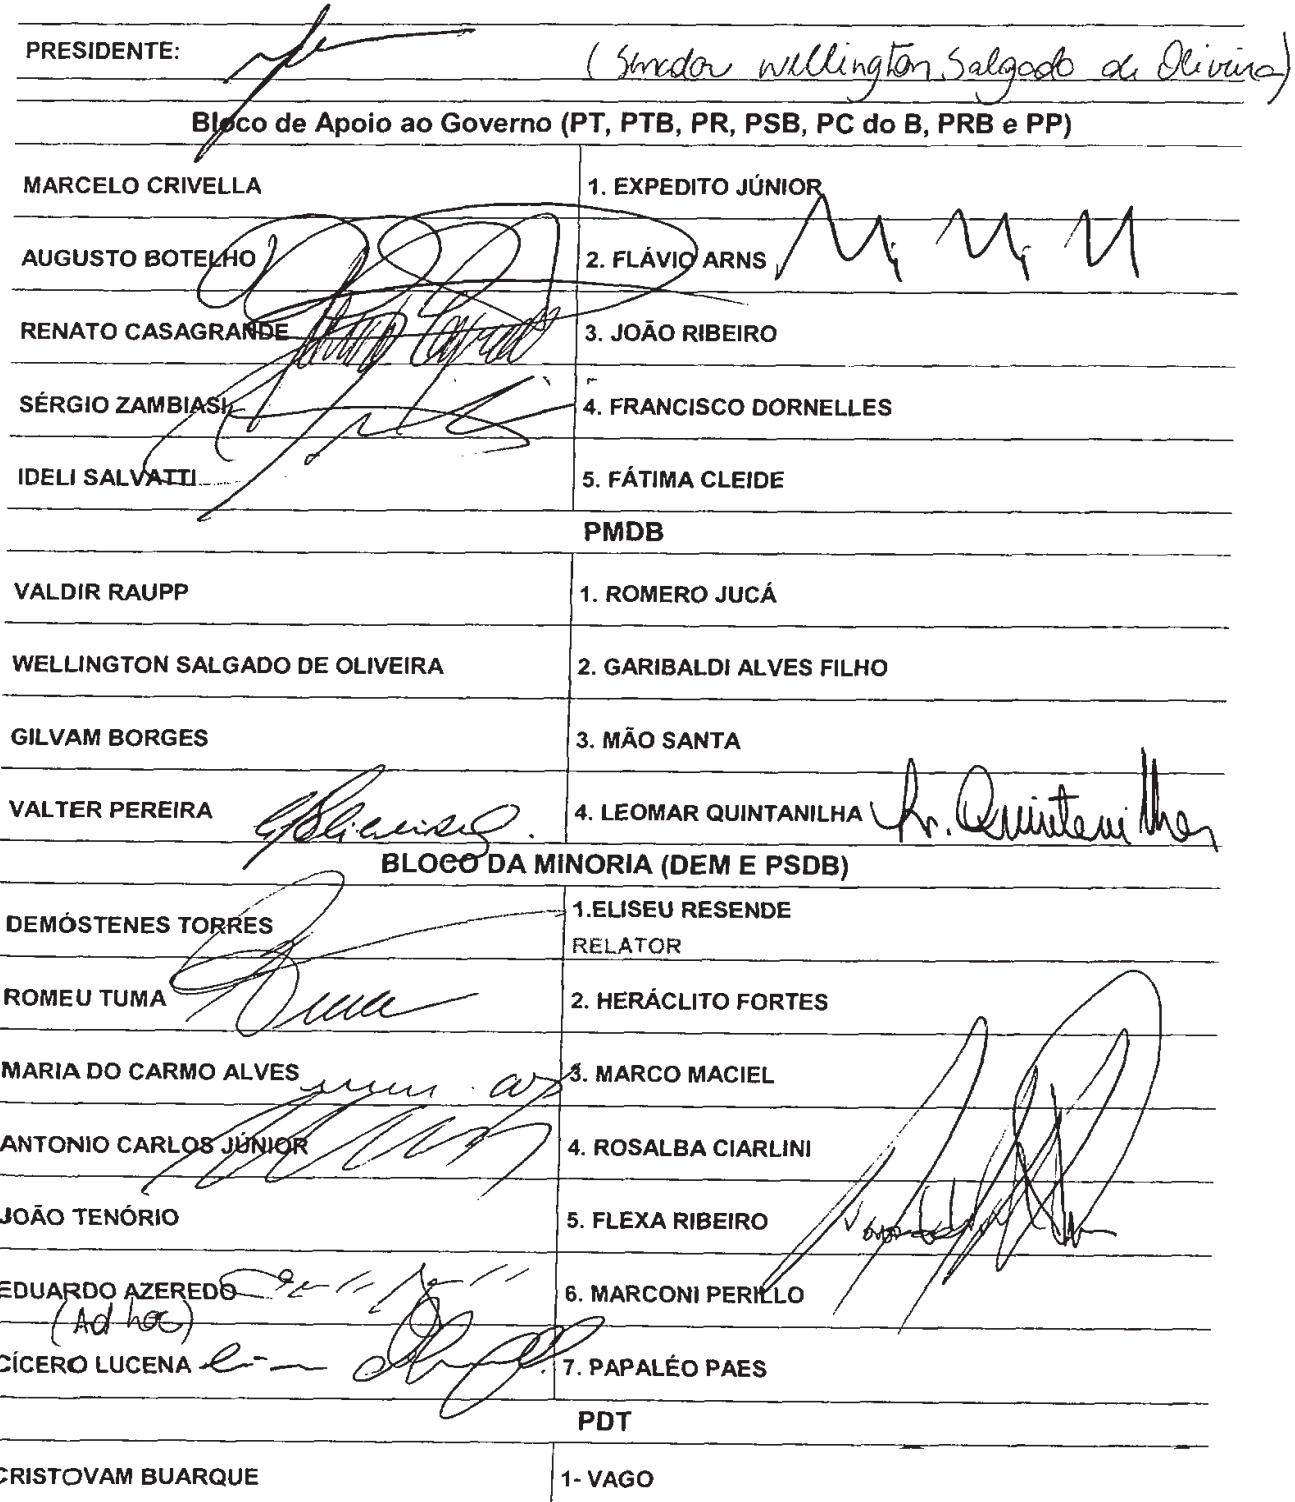 PRESIDENTE: (Senador Wellington Salgado de Oliveira)
Bloco de Apoio ao Governo (PT, PTB, PR, PSB, PC do B, PRB e PP)
MARCELO CRIVELLA 1. EXPEDITO JÚNIOR
AUGUSTO BOTELHO 2. FLÁVIO ARNS
RENATO CASAGRANDE 3. JOÃO RIBEIRO
SÉRGIO ZAMBIASI 4. FRANCISCO DORNELLES
IDELI SALVATTI 5. FÁTIMA CLEIDE
PMDB
VALDIR RAUPP 1. ROMERO JUCÁ
WELLINGTON SALGADO DE OLIVEIRA 2. GARIBALDI ALVES FILHO
GILVAM BORGES 3. MÃO SANTA
VALTER PEREIRA 4. LEOMAR QUINTANILHA Quintanilha
BLOCO DA MINORIA (DEM E PSDB)
DEMÓSTENES TORRES 1.ELISEU RESENDE
RELATOR
ROMEU TUMA 2. HERÁCLITO FORTES
MARIA DO CARMO ALVES 3. MARCO MACIEL
ANTONIO CARLOS JÚNIOR 4. ROSALBA CIARLINI
JOÃO TENÓRIO 5. FLEXA RIBEIRO
EDUARDO AZEREDO 6. MARCONI PERILLO
(Ad hoc)
CÍCERO LUCENA 7. PAPALÉO PAES
PDT
CRISTOVAM BUARQUE 1- VAGO